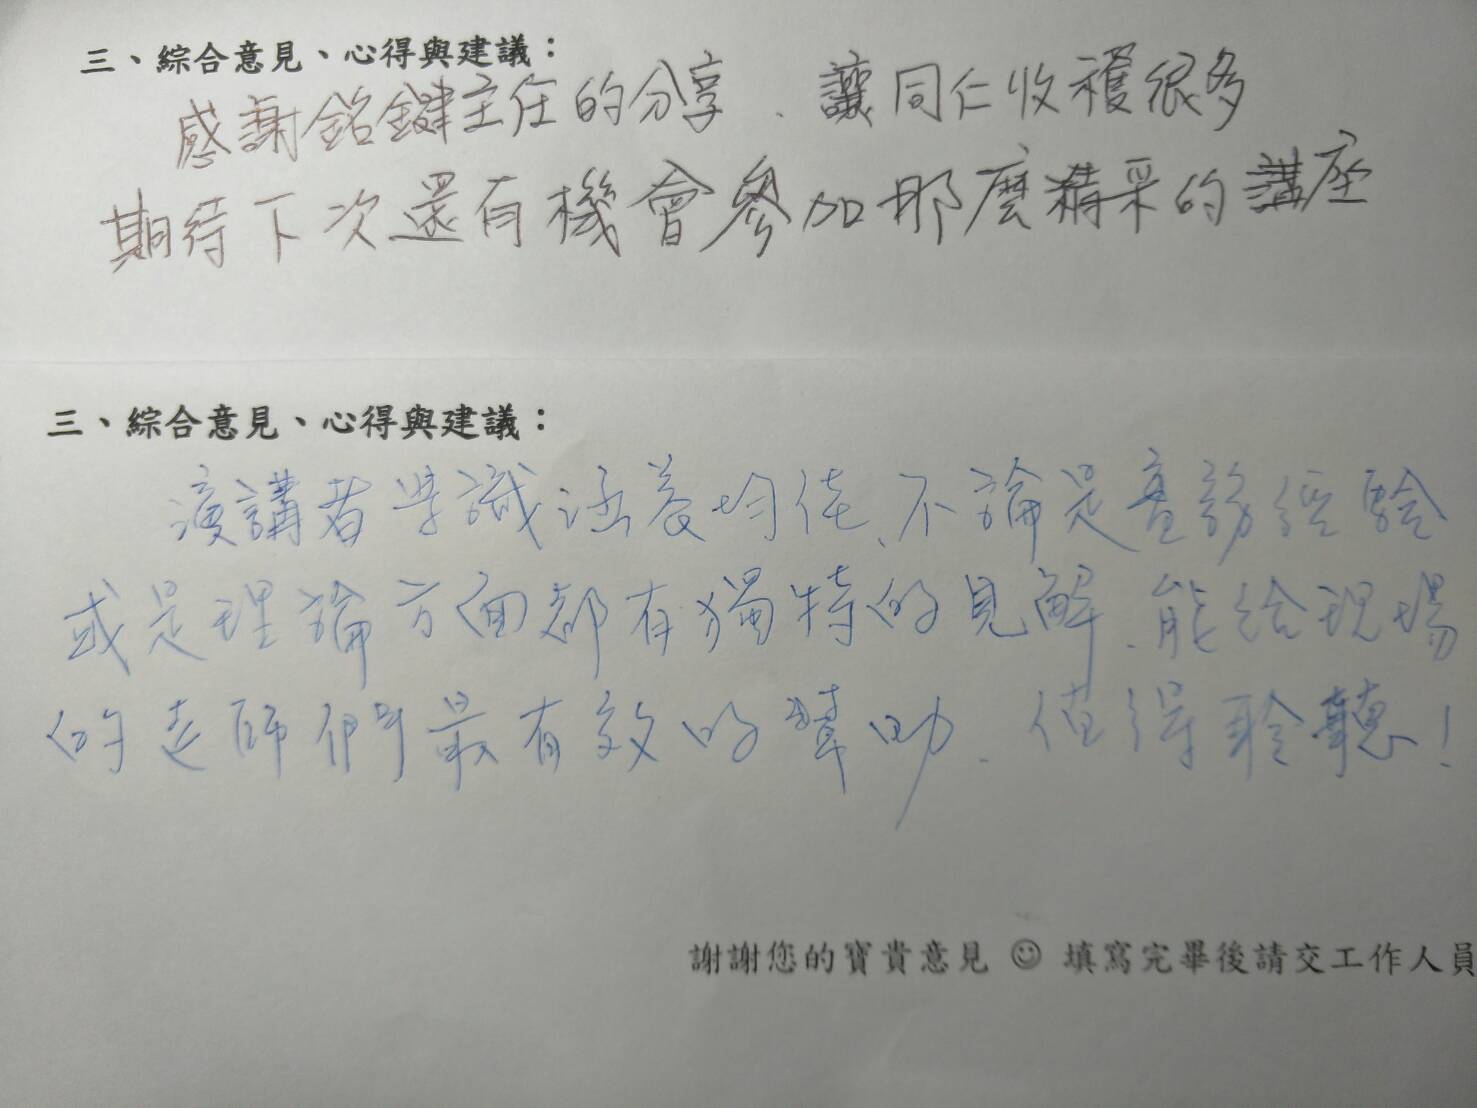 三、綜合意見、心得與建議：
感謝銘鍵主任的分享、讓同仁收穫很多
期待下次還有機會參加那麼精采的講座
三、綜合意見、心得與建議：
演講者學識涵養均佳、不論是實務經驗
或是理論方面都有獨特的見解、能給現場
的老師們最有效的幫助、值得聆聽！
謝謝您的寶貴意見 ☺ 填寫完畢後請交工作人員